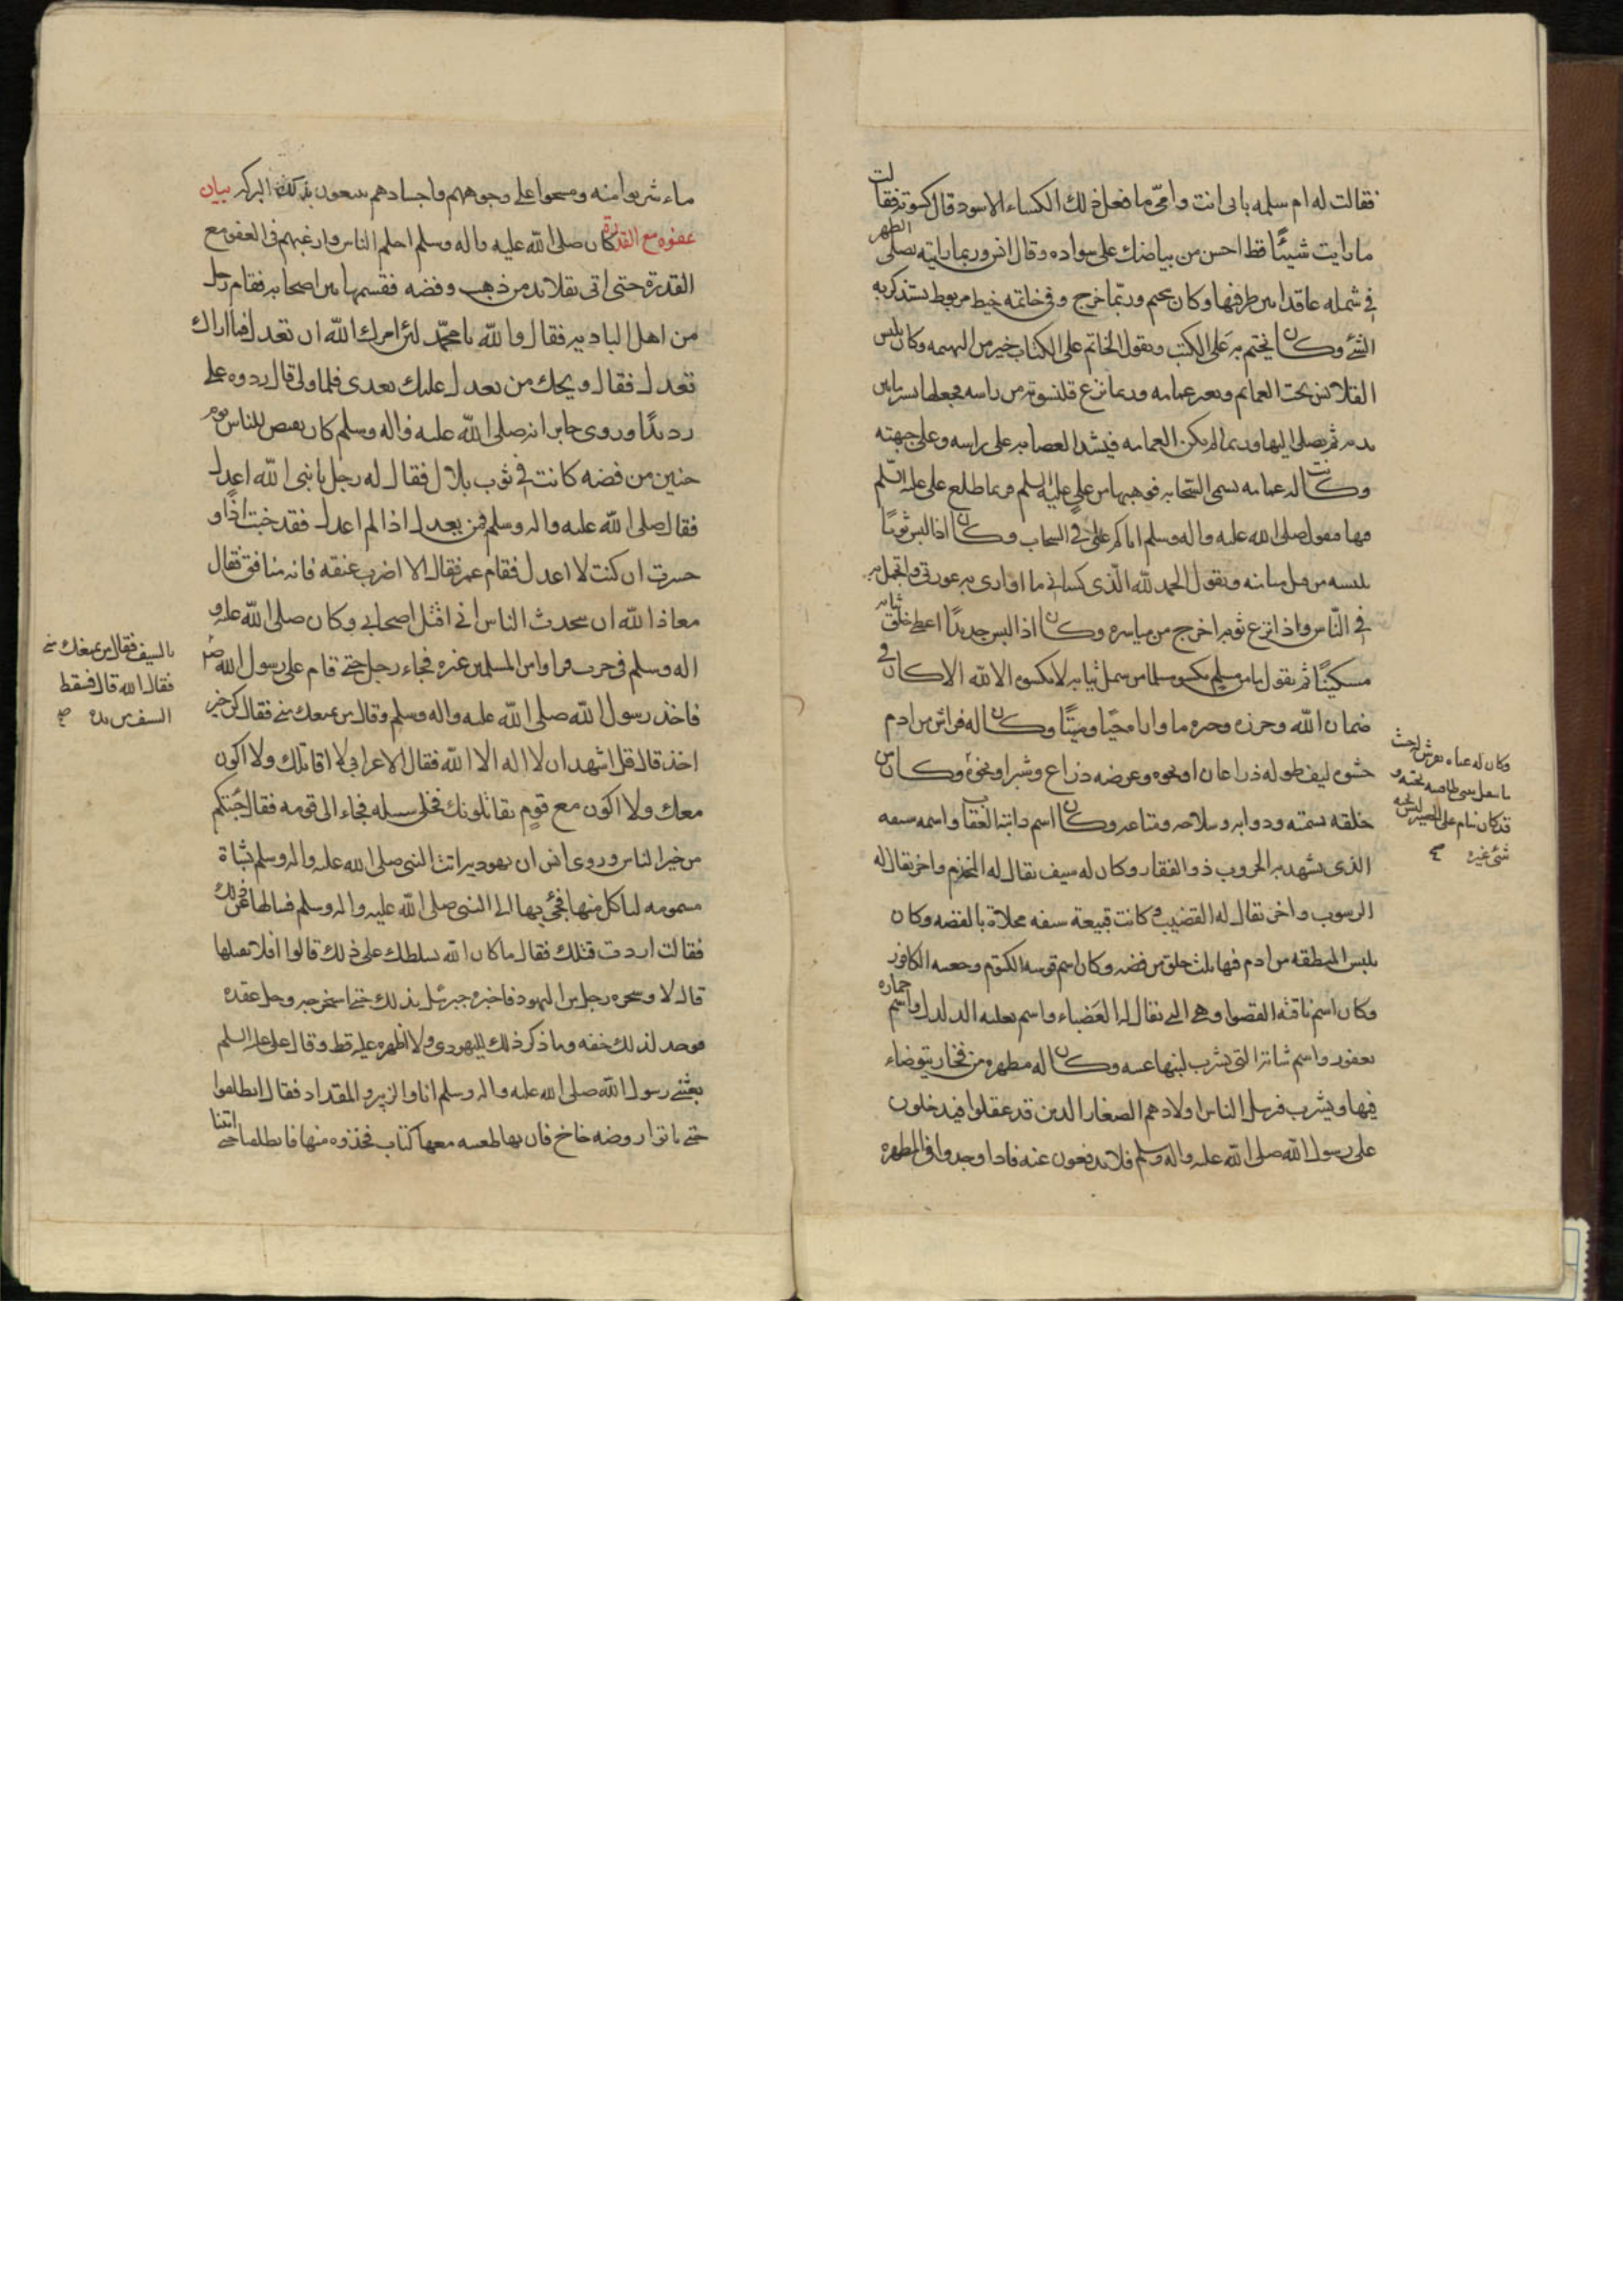 فقالت له ام سلمه بابى انت وامّى ما فعل ذلك الكساء الاسود قال كسوته فقالت
ما رايت شيئًا قط احسن من بياضك على سواده وقال انس وربما رايته يصلى الظهر
فى شمله عاقدا بين طرفيها وكان يختم وربّما خرج وفى خاتمه خيط مربوط يستذكر به
الشئ وكان يختم به على الكتب ويقول الخاتم على الكتاب خير من التهمه وكان يلبس
القلانس تحت العمائم وبغير عمامه وربما نزع قلنسوته من راسه فجعلها ستره بين
يديه ثم يصلى اليها وربما لم يكن العمامه فيشد العصابه على راسه وعلى جبهته
وكانت له عمامه تسمى السّحاب فوهبها من على عليه السلم فربما طلع على عليه السّلم
فيها فيقول صلى الله عليه واله وسلم اتاكم علىّ فى السحاب وكان اذا لبس ثوبًا
يلبسه من قبل ميامنه ويقول الحمد لله الّذى كسانى ما اوارى به عورتى واتجمل به
فى النّاس واذا نزع ثوبه اخرج من مياسره وكان اذا لبس جديدًا اعطى خلق ثيابه
مسكينًا ثم يقول ما من مسلم يكسو مسلما من سمل ثيابه لا يكسوه الا لله الا كان فى
ضمان الله وحرزه وخيره ما واراه حيًا وميتًا وكان له فراش من ادم
حشوه ليف طوله ذراعان او نحوه وعرضه ذراع وشبر او نحوه وكان من
خلقه تسميته ودوابه وسلاحه ومتاعه وكان اسم رايته العقاب واسم سيفه
الذى يشهد به الحروب ذو الفقار وكان له سيف يقال له المخذم واخر يقال له
الرسوب واخر يقال له القضيب وكانت قبيعة سيفه محلاة بالفضه وكان
يلبس المنطقه من ادم فيها ثلث حلق من فضه وكان اسم قوسه الكتوم وجعبته الكافور
وكان اسم ناقته القصوا وهى التى يقال لها العَضباء واسم بغلته الدلدل واسم حماره
يعفور واسم شاته التى يشرب لبنها عينه وكان له مطهره من فخار يتوضاء
فيها ويشرب فيرسل الناس اولادهم الصغار الذين قد عقلوا فيدخلون
على رسول الله صلى الله عليه واله وسلم فلا يدفعون عنه فاذا وجدوا فى المطهره
وكان له عباه تفرش له حيث
ما تنقل تثنى طاقين تحته و
قد كان ينام على الحصير ليس تحته
شئ غيره صح
ماء شربوا منه ومسحوا على وجوههم واجسادهم يبتغون بذلك البركه بيان
عفوه مع القدرة كان صلى الله عليه واله وسلم احلم الناس وارغبهم فى العفو مع
القدرة حتى اتى بقلائد من ذهب وفضه فقسمها بين اصحابه فقام رجل
من اهل الباديه فقال والله يا محمّد لئن امرك الله ان تعدل فما اراك
تعدل فقال ويحك من يعدل عليك بعدى فلما ولى قال ردوه على
رويدًا وروى جابر انه صلى الله عليه واله وسلم كان يقبض للناس يوم
حنين من فضه كانت فى ثوب بلال فقال له رجل يا نبى الله اعدل
فقال صلى الله عليه واله وسلم فمن يعدل اذا لم اعدل فقد خبت اذًا و
خسرت ان كنت لا اعدل فقام عمر فقال الا اضرب عنقه فانه منافق فقال
معاذ الله ان يتحدث الناس انى اقتل اصحابى وكان صلى الله عليه و
اله وسلم فى حرب فراوا من المسلمين غره فجاء رجل حتى قام على رسول الله
فاخذ رسول الله صلى الله عليه واله وسلم وقال من يمنعك منى فقال كن خير
اخذ قال قل اشهد ان لا اله الا الله فقال الاعرابى لا اقاتلك ولا اكون
معك ولا اكون مع قوم يقاتلونك فخلى سبيله فجاء الى قومه فقال جئتكم
من خير الناس وروى انس ان يهوديه اتت النبى صلى الله عليه واله وسلم بشاة
مسمومه لياكل منها فجئ بها الى النبى صلى الله عليه واله وسلم فسالها عن ذلك
فقالت اردت قتلك فقال ما كان الله يسلطك على ذلك قالوا افلا نقتلها
قال لا وسحره رجل من اليهود فاخبره جبرئيل بذلك حتى استخرجه وحل عقده
فوجد لذلك خفه وما ذكر ذلك لليهودى ولا اظهره عليه قط وقال على عليه السلم
بعثنى رسول الله صلى الله عليه واله وسلم انا والزبير والمقداد فقال انطلقوا
حتى تاتوا روضه خاخ فان بها ظعينه معها كتاب فخذوه منها فانطلقنا حتى اتينا
بالسيف فقال من يمنعك منى
فقال الله قال فسقط
السيف من يده صح